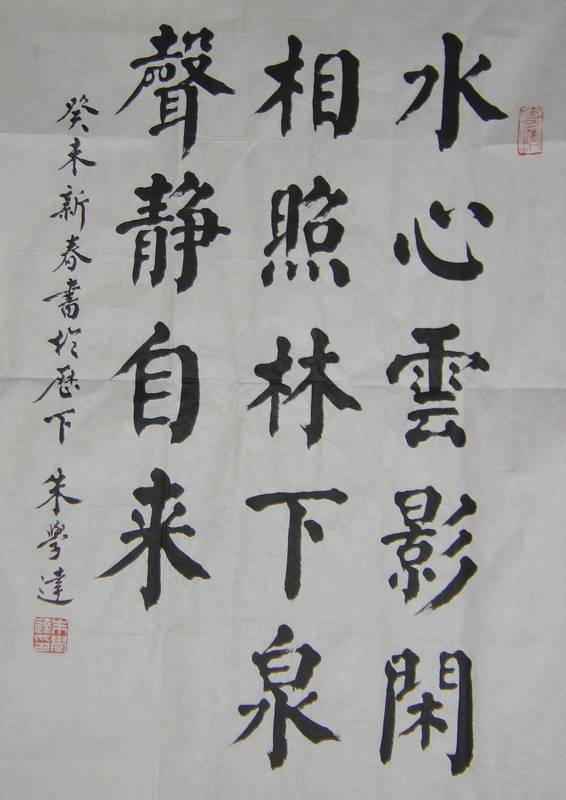 水心雲影閑
相照林下泉
聲静自来
癸未新春書於歷下 朱學達